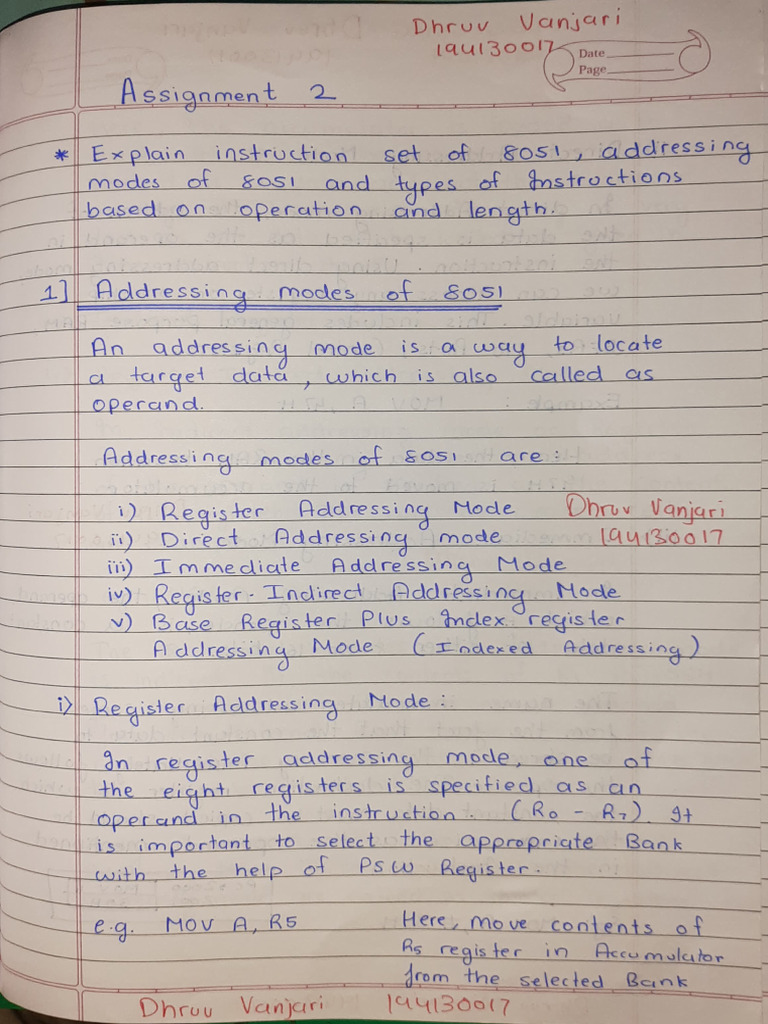 Dhruv Vanjari
194130017
Date
Page
Assignment 2
* Explain instruction set of 8051, addressing
modes of 8051 and types of Instructions
based on operation and length.
1] Addressing modes of 8051
An addressing mode is a way to locate
a target data, which is also called as
operand.
Addressing modes of 8051 are:
i) Register Addressing Mode Dhruv Vanjari
ii) Direct Addressing mode 194130017
iii) Immediate Addressing Mode
iv) Register-Indirect Addressing Mode
v) Base Register Plus Index register
Addressing Mode (Indexed Addressing)
i) Register Addressing Mode:
In register addressing mode, one of
the eight registers is specified as an
operand in the instruction. (R0 - R7). It
is important to select the appropriate Bank
with the help of PSW Register.
e.g. MOV A, R5 Here, move contents of
R5 register in Accumulator
from the selected Bank
Dhruv Vanjari 194130017